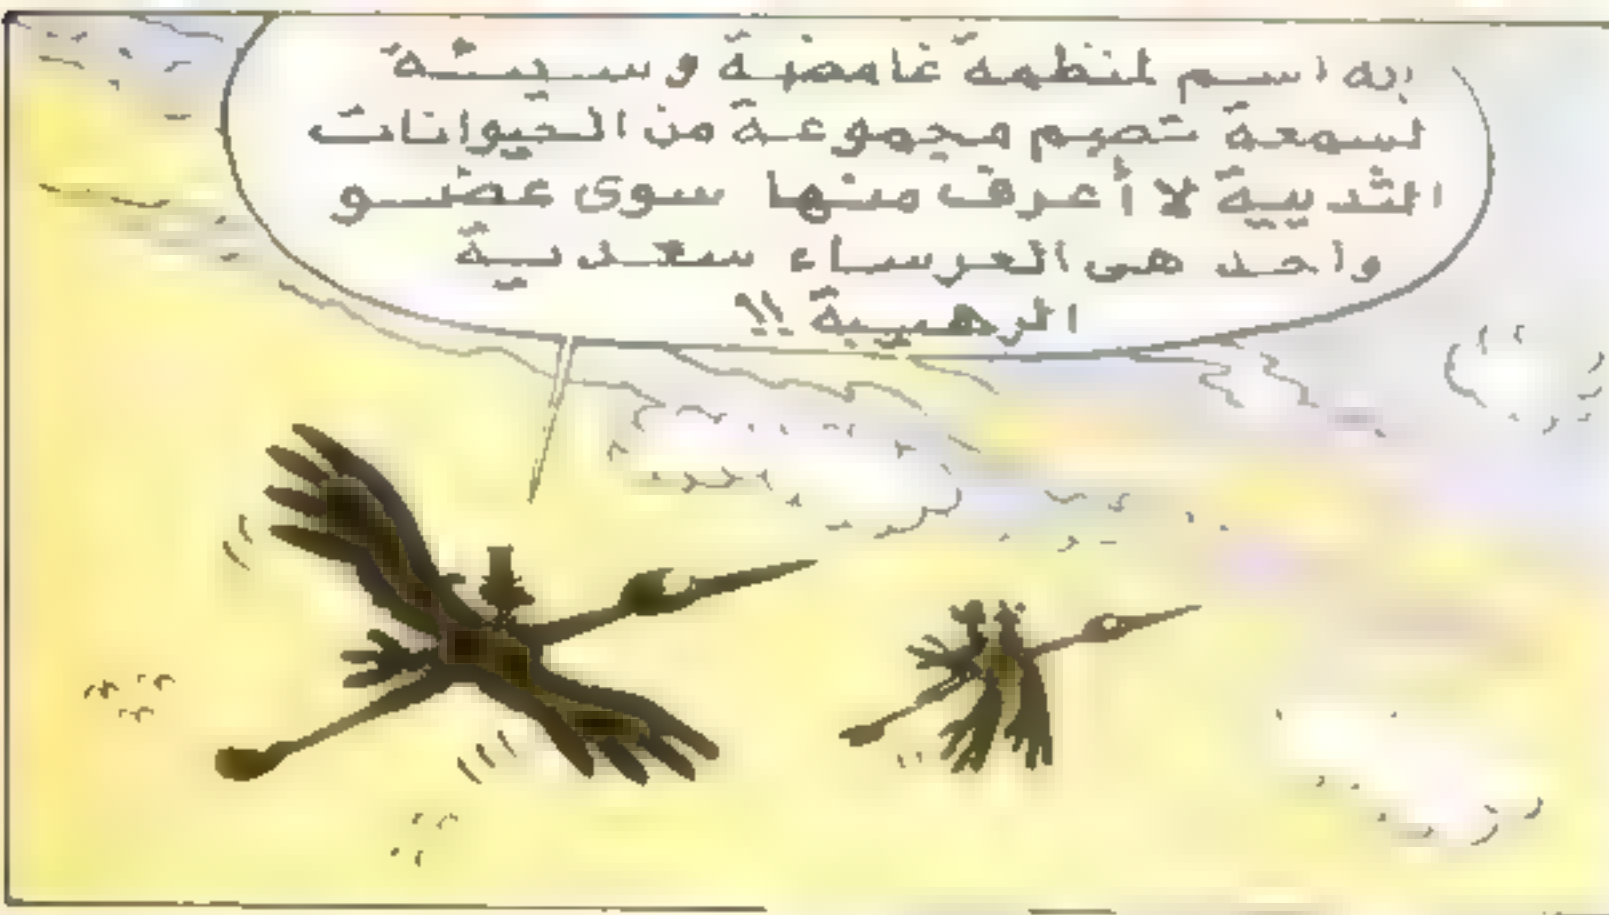 إنه اسم لمنظمة غامضة وسيئة
لسمعة تضم مجموعة من الحيوانات
الثديية لا أعرف منها سوى عضو
واحد هى العرساء سعدية
الرهيبة !!